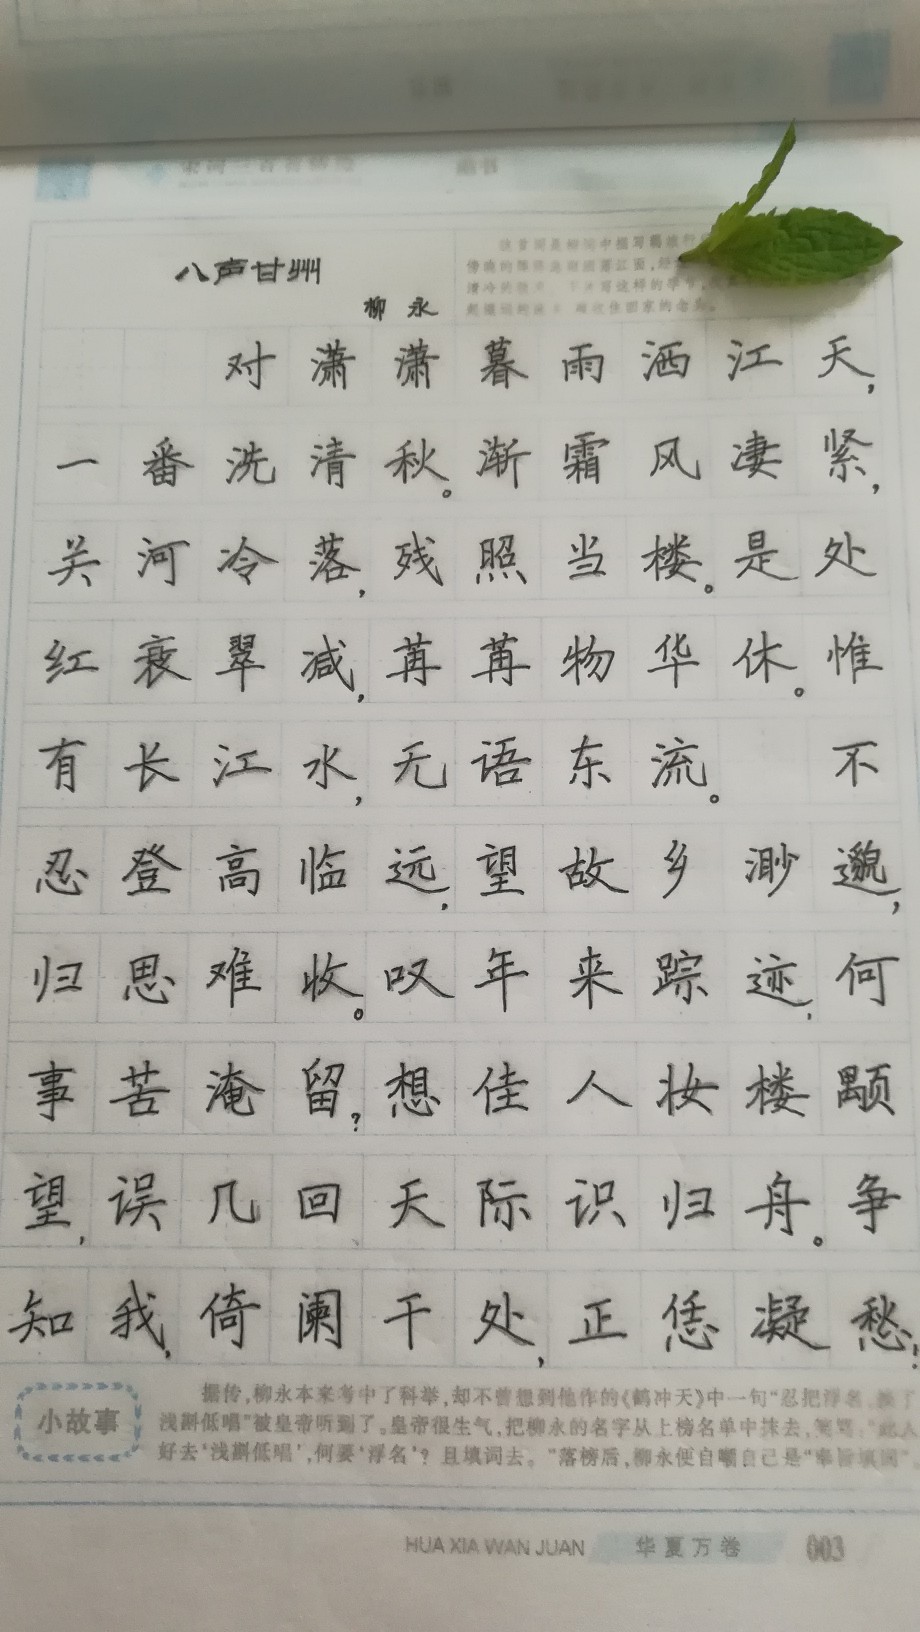 八声甘州
柳永
对潇潇暮雨洒江天,
一番洗清秋。渐霜风凄紧,
关河冷落,残照当楼。是处
红衰翠减,苒苒物华休。惟
有长江水,无语东流。 不
忍登高临远,望故乡渺邈,
归思难收。叹年来踪迹,何
事苦淹留?想佳人妆楼颙
望,误几回天际识归舟。争
知我,倚阑干处,正恁凝愁!
小故事
据传,柳永本来考中了科举,却不曾想到他作的《鹤冲天》中一句“忍把浮名,换了
浅斟低唱”被皇帝听到了。皇帝很生气,把柳永的名字从上榜名单中抹去,
好去‘浅斟低唱’,何要‘浮名’?且填词去。”落榜后,柳永便自嘲自己是“奉旨填词”。
HUA XIA WAN JUAN 华夏万卷 003